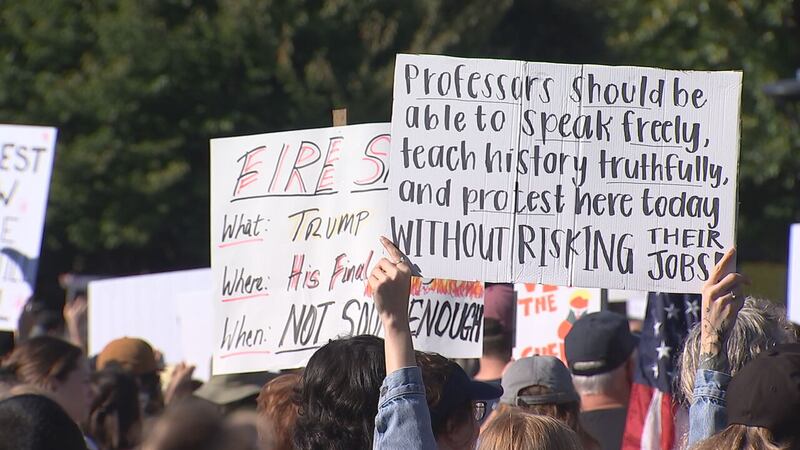 Professors should be
able to speak freely,
teach history truthfully,
and protest here today
WITHOUT RISKING THEIR
JOBS!
FIRE
What: TRUMP
Where: His Final
When: NOT SOON ENOUGH
THE